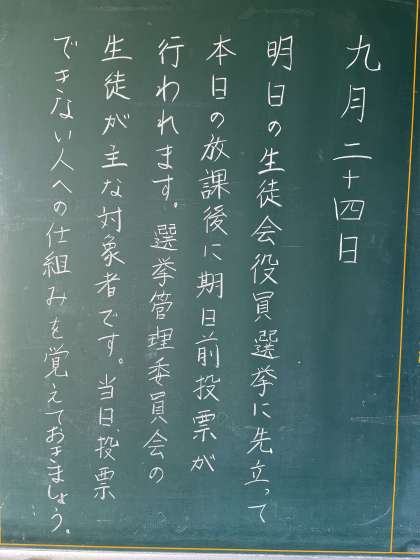 九月二十四日
明日の生徒会役員選挙に先立って
本日の放課後に期日前投票が
行われます。選挙管理委員会の
生徒が主な対象者です。当日、投票
できない人への仕組みを覚えておきましょう。